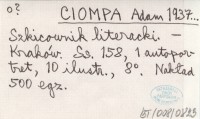 o?
CIOMPA Adam 1937...
Szkicownik literacki. –
Kraków. Ss. 158, 1 autopor-
tret, 10 ilustr., 8°. Nakład
500 egz.